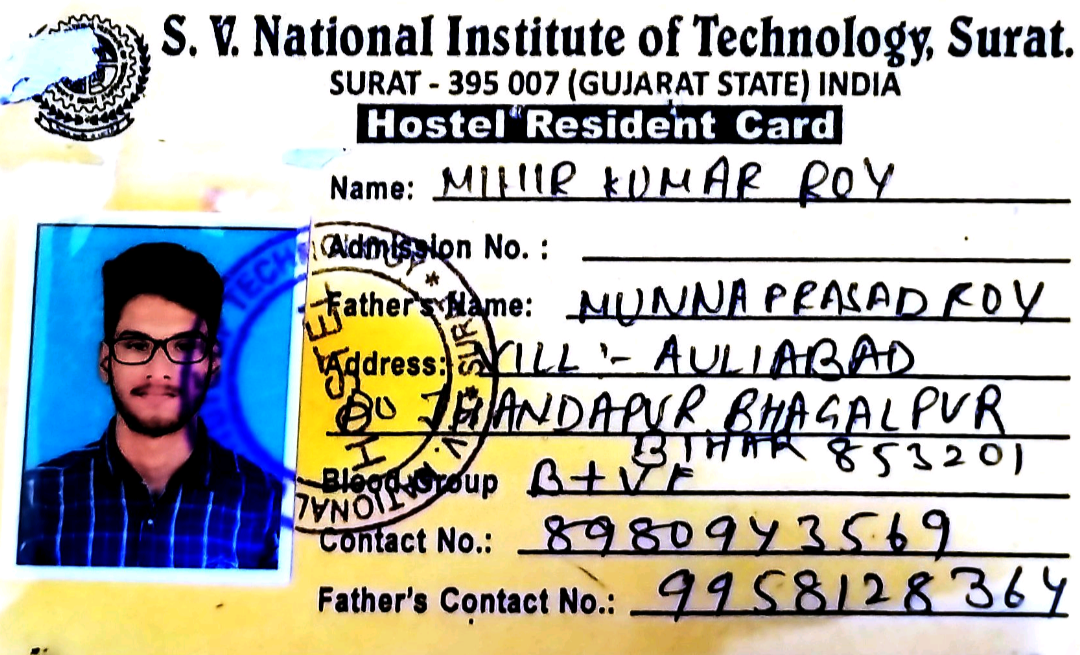 S. V. National Institute of Technology, Surat.
SURAT - 395 007 (GUJARAT STATE) INDIA
Hostel Resident Card
Name: MIHIR KUMAR ROY
Admission No. :
Father's Name: MUNNA PRASAD ROY
Address: VILL :- AULIABAD
JHANDAPUR BHAGALPUR
BIHAR 853201
Blood Group B+VE
Contact No.: 8980943569
Father's Contact No.: 9958128364